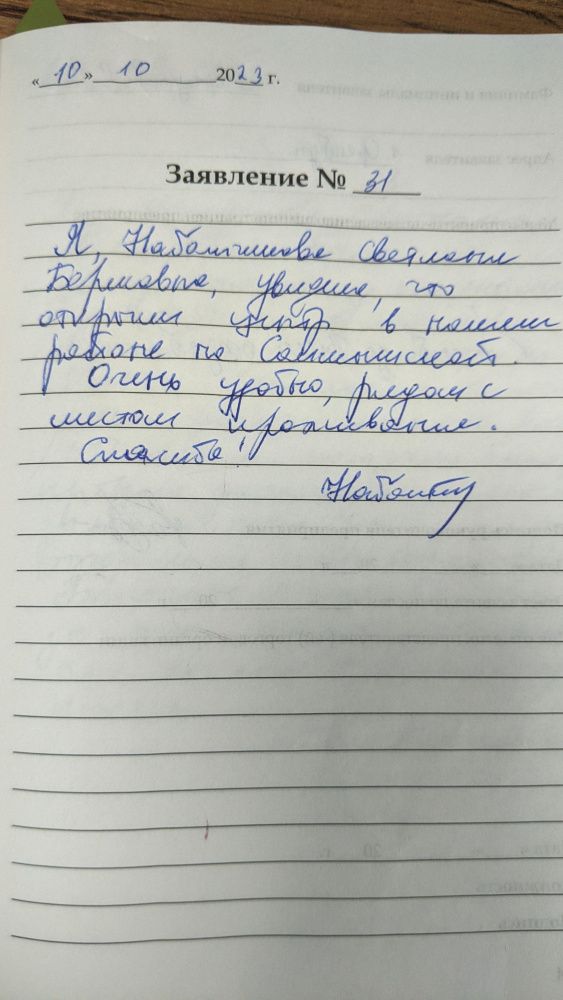 «10» 10 2023 г.
Заявление № 31
Я, Светлана
увидела, что
открыли центр в нашем
районе по
Очень удобно, рядом с
местом проживания.
Спасибо!